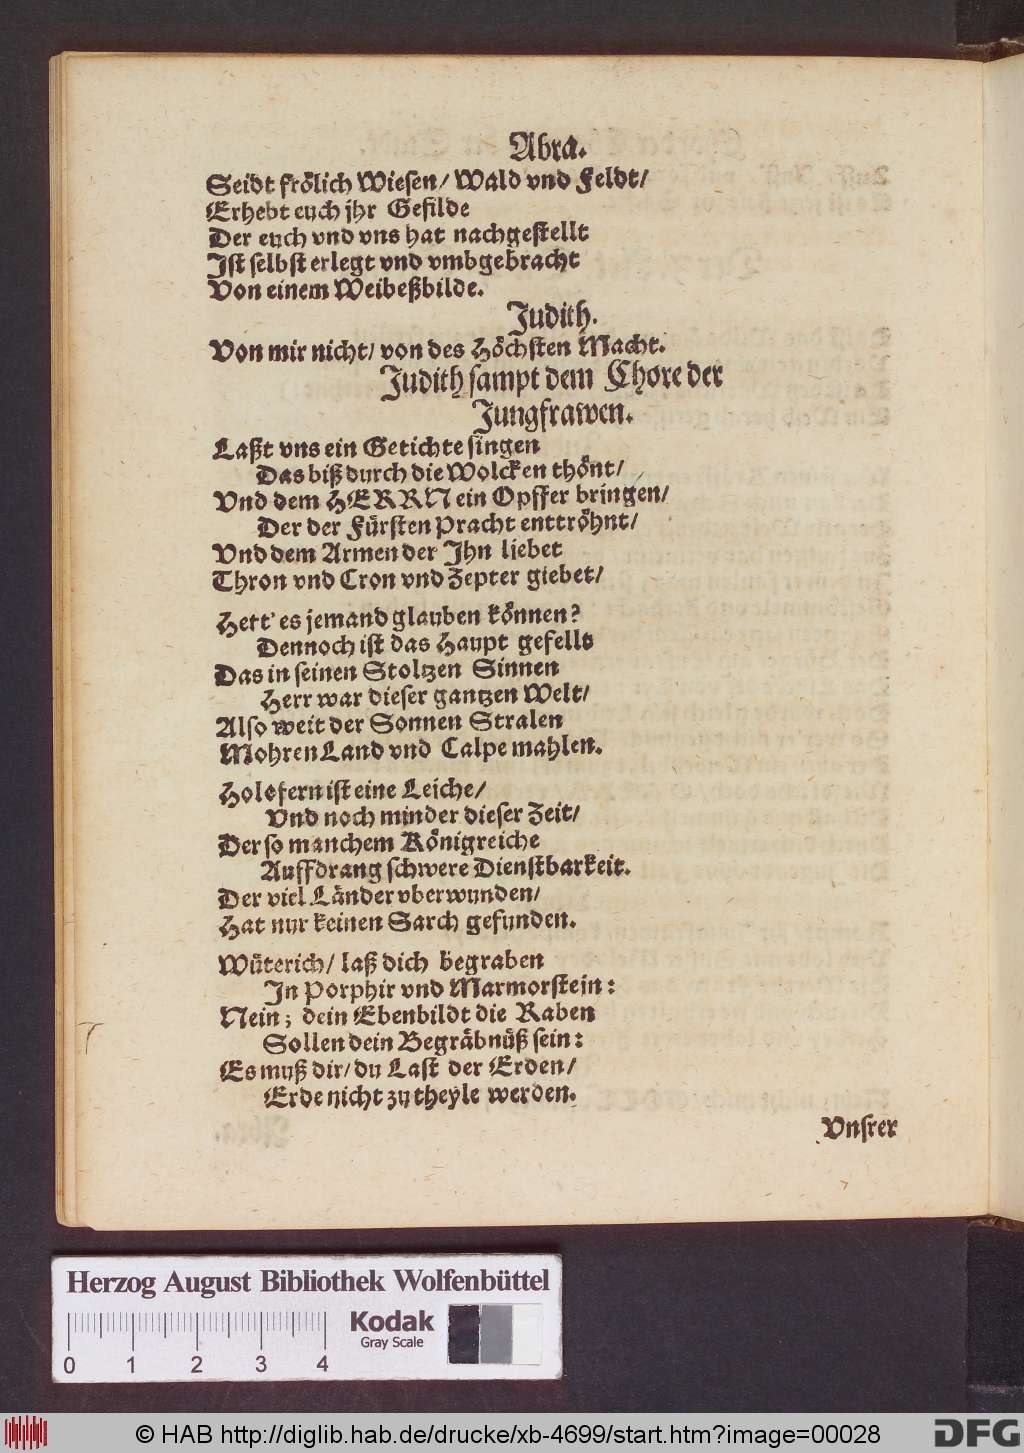 Abra.
Seidt frölich Wiesen/ Wald vnd Feldt/
Erhebt euch jhr Gefilde
Der euch vnd vns hat nachgestellt
Ist selbst erlegt vnd vmbgebracht
Von einem Weibeßbilde.
Judith.
Von mir nicht/ von des Höchsten Macht.
Judith sampt dem Chore der
Jungfrawen.
Laßt vns ein Getichte singen
Das biß durch die Wolcken thönt/
Vnd dem HERRN ein Opffer bringen/
Der der Fürsten Pracht enttröhnt/
Vnd dem Armen der Ihn liebet
Thron vnd Cron vnd Zepter giebet/
Hett' es jemand glauben können?
Dennoch ist das Haupt gefellt
Das in seinen Stoltzen Sinnen
Herr war dieser gantzen Welt/
Also weit der Sonnen Stralen
Mohren Land vnd Calpe mahlen.
Holofern ist eine Leiche/
Vnd noch minder dieser Zeit/
Der so manchem Königreiche
Auffdrang schwere Dienstbarkeit.
Der viel Länder vberwunden/
Hat nur keinen Sarch gefunden.
Wüterich/ laß dich begraben
In Porphir vnd Marmorstein:
Nein; dein Ebenbildt die Raben
Sollen dein Begräbnüß sein:
Es muß dir/ du Last der Erden/
Erde nicht zu theyle werden.
Vnsrer
Herzog August Bibliothek Wolfenbüttel
Kodak
Gray Scale
0 1 2 3 4
© HAB http://diglib.hab.de/drucke/xb-4699/start.htm?image=00028
DFG